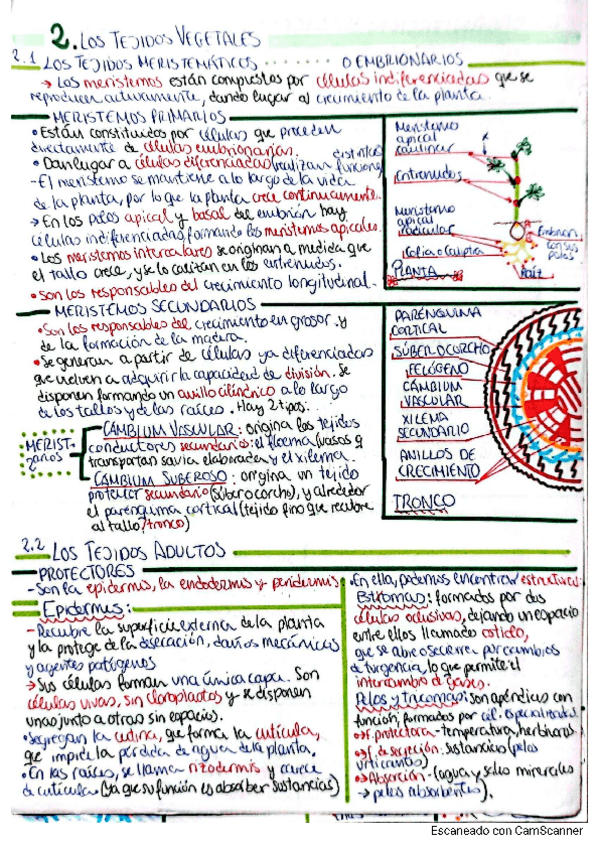 2. LOS TEJIDOS VEGETALES
2.1 LOS TEJIDOS MERISTEMÁTICOS ........ O EMBRIONARIOS
→ Los meristemos están compuestos por células indiferenciadas que se
reproducen activamente, dando lugar al crecimiento de la planta.
MERISTEMOS PRIMARIOS
• Están constituidos por células que proceden
directamente de células embrionarias.
• Dan lugar a células diferenciadas (realizan distintas funciones
- El meristemo se mantiene a lo largo de la vida
de la planta, por lo que la planta crece continuamente.
→ En los polos apical y basal del embrión hay
células indiferenciadas, formando los meristemos apicales.
• Los meristemos intercalares se originan a medida que
el tallo crece, y se localizan en los entrenudos.
• Son los responsables del crecimiento longitudinal.
Meristemo
apical
caulinar
Entrenudos
Meristemo
apical
radicular
Cofia o Caliptra
PLANTA
Embrión
con sus
polos
Raíz
MERISTEMOS SECUNDARIOS
• Son los responsables del crecimiento en grosor y
de la formación de la madera.
• Se generan a partir de células ya diferenciadas
que vuelven a adquirir la capacidad de división. Se
disponen formando un anillo cilíndrico a lo largo
de los tallos y de las raíces. Hay 2 tipos:
MERIST-
CÁMBIUM VASCULAR: origina los tejidos
conductores secundarios: el floema (vasos q
transportan savia elaborada y el xilema.
CÁMBIUM SUBEROSO: origina un tejido
protector secundario (súber o corcho), y alrededor
el parénquima cortical (tejido fino que recubre
al tallo/tronco)
PARÉNQUIMA
CORTICAL
SÚBER O CORCHO
FELÓGENO
CÁMBIUM
VASCULAR
XILEMA
SECUNDARIO
ANILLOS DE
CRECIMIENTO
TRONCO
2.2 LOS TEJIDOS ADULTOS
PROTECTORES
- Son la epidermis, la endodermis y peridermis
Epidermis:
- Recubre la superficie externa de la planta
y la protege de la desecación, daños mecánicos
y agentes patógenos
→ Sus células forman una única capa. Son
células vivas, sin cloroplastos y se disponen
unas junto a otras sin espacio).
• Segregan la cutina, que forma la cutícula,
que impide la pérdida de agua de la planta.
• En las raíces, se llama rizodermis y carece
de cutícula. (Ya que su función es absorber sustancias)
• En ella, podemos encontrar estructuras:
Estromas: formados por dos
células oclusivas, dejando un espacio
entre ellos llamado ostiolo,
que se abre o se cierra por cambios
de turgencia, lo que permite el
intercambio de gases.
Pelos y tricomas: son apéndices con
función, formados por cél. especializadas.
→ f. protectora - temperatura, herbívoros
→ f. de secreción: sustancias (pelos
urticantes)
→ Absorción - (agua y sales minerales
→ pelos absorbentes).
Escaneado con CamScanner